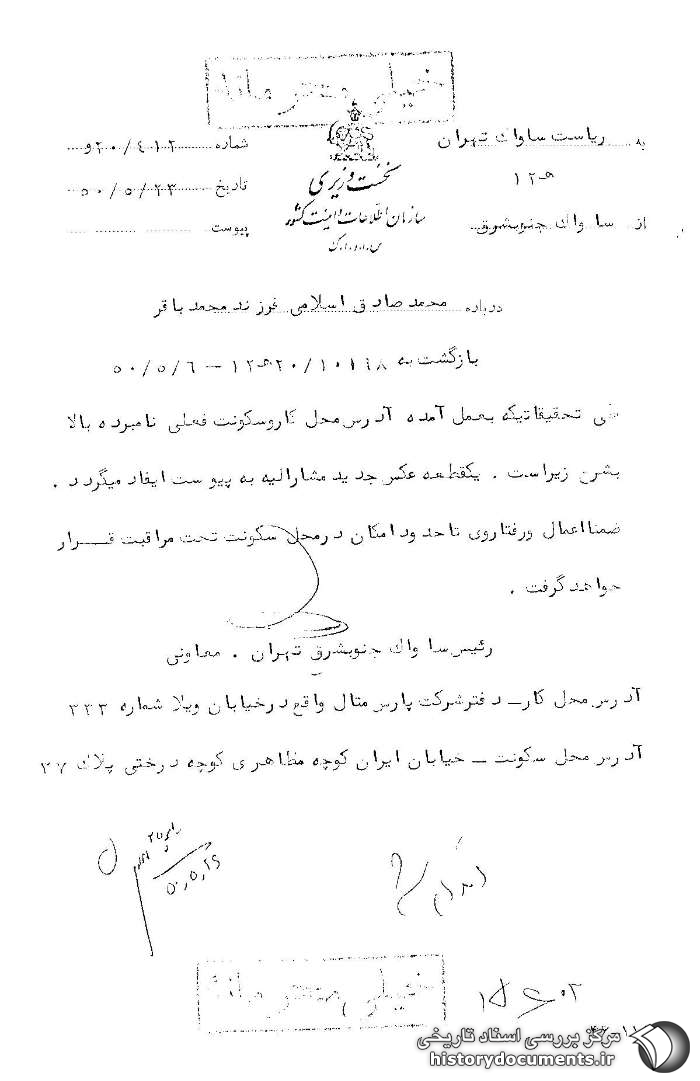 خیلی محرمانه
به ریاست ساواک تهران
۱۲هـ
از ساواک جنوبشرق
نخست وزیری
سازمان اطلاعات و امنیت کشور
س.ا.و.ا.ک
شماره ۲۰/۴۰۱۲و
تاریخ ۵۰/۵/۲۳
پیوست
درباره محمد صادق اسلامی فرزند محمد باقر
بازگشت به ۱۲هـ۲۰/۱۰۱۴۸ – ۵۰/۵/۶
طی تحقیقاتیکه بعمل آمده آدرس محل کار و سکونت فعلی نامبرده بالا
بشرن زیراست . یکقطعه عکس جدید مشارالیه به پیوست ایفاد میگردد .
ضمنا اعمال ورفتاروی تا حدود امکان درمحل سکونت تحت مراقبت قرار
خواهد گرفت .
رئیس ساواک جنوبشرق تهران . معاونی
آدرس محل کار – دفتر شرکت پارس متال واقع درخیابان ویلا شماره ۲۲۳
آدرس محل سکونت – خیابان ایران کوچه مظاهری کوچه درختی پلاک ۲۷
۵۰٫۵٫۲۶
خیلی محرمانه
مرکز بررسی اسناد تاریخی
historydocuments.ir